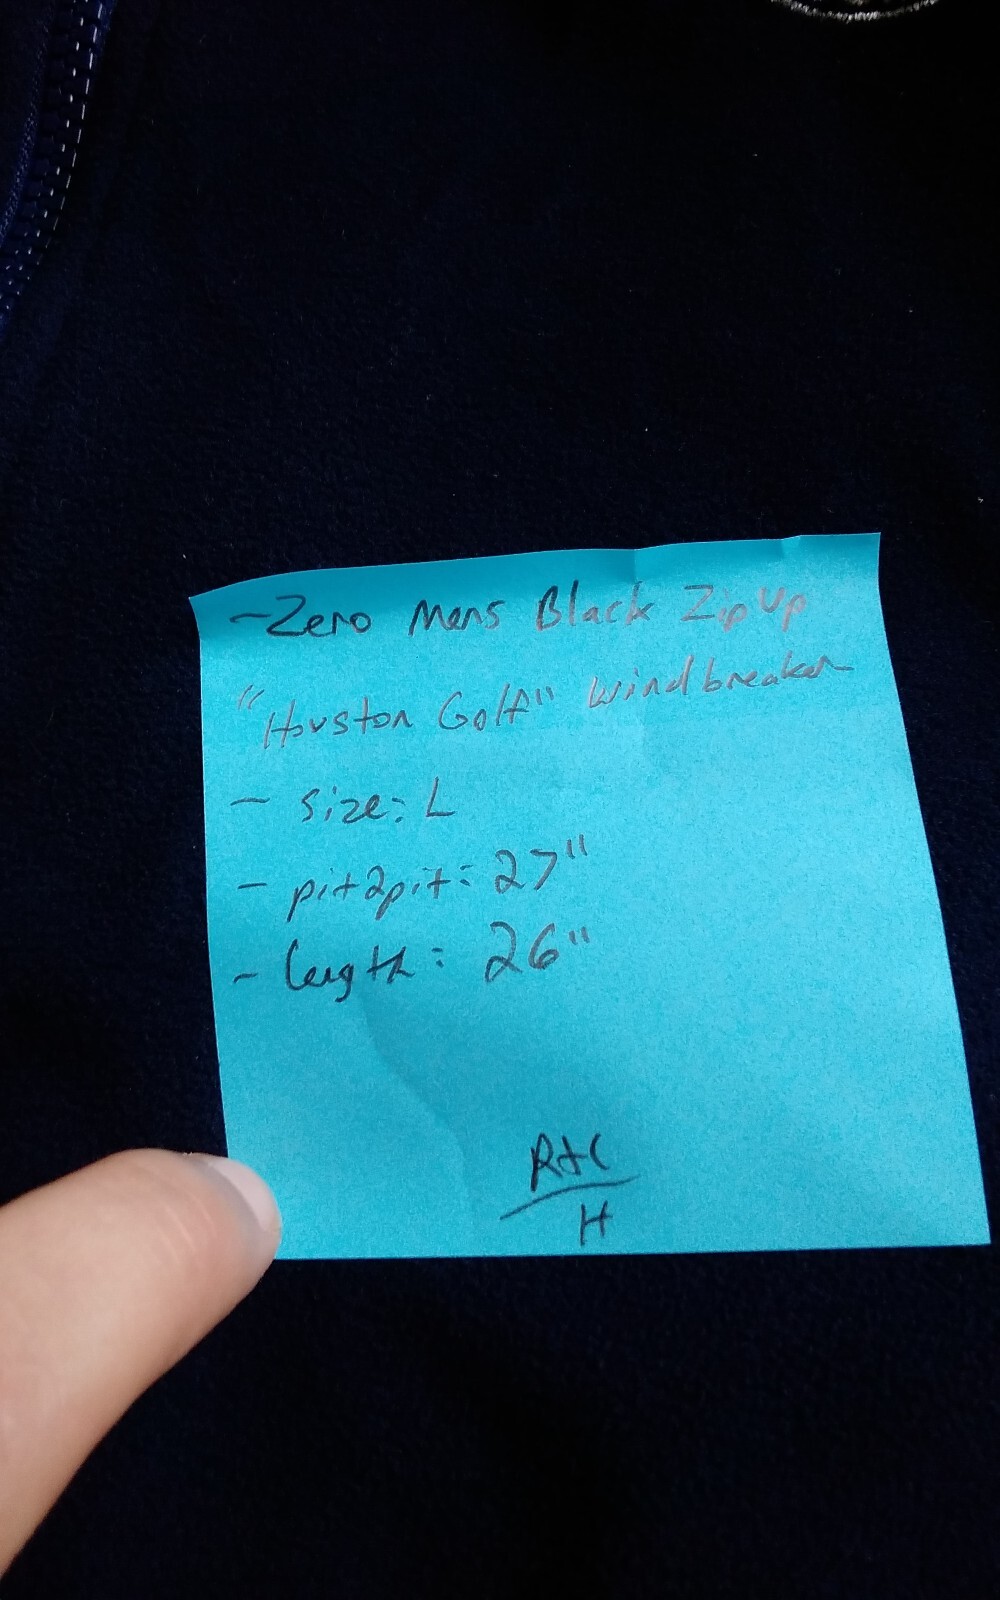 - Zero Mens Black Zip Up
"Houston Golf" Windbreaker
- size: L
- pit2pit: 27"
- length: 26"
R+C
H